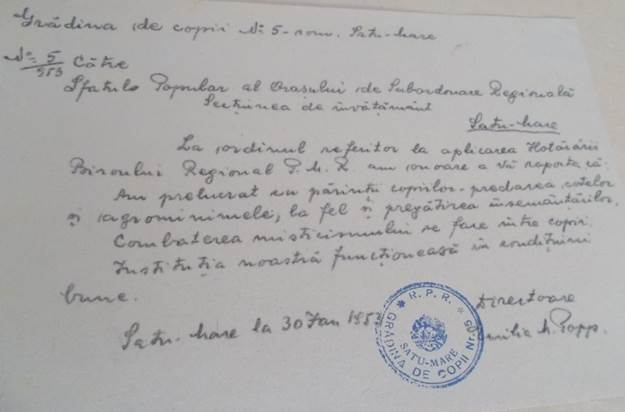 Grădina de copii Nr 5 - rom. Satu-Mare
Nr. 5/953 Către
Sfatul Popular al Orașului de Subordonare Regională
Secțiunea de învățământ
Satu-Mare
La ordinul referitor la aplicarea Hotărârii
Biroului Regional P.M.R. am onoare a vă raporta că:
Am prelucrat cu părinții copiilor - predarea cotelor
și agrominimele, la fel și pregătirea însemânțărilor.
Combaterea misticismului se face între copii.
Instituția noastră funcționează în condițiuni
bune.
Satu-Mare la 30 Ian 1953
Directoare
Emilia M. Popp.
R.P.R.
GRĂDINA DE COPII Nr.
SATU-MARE